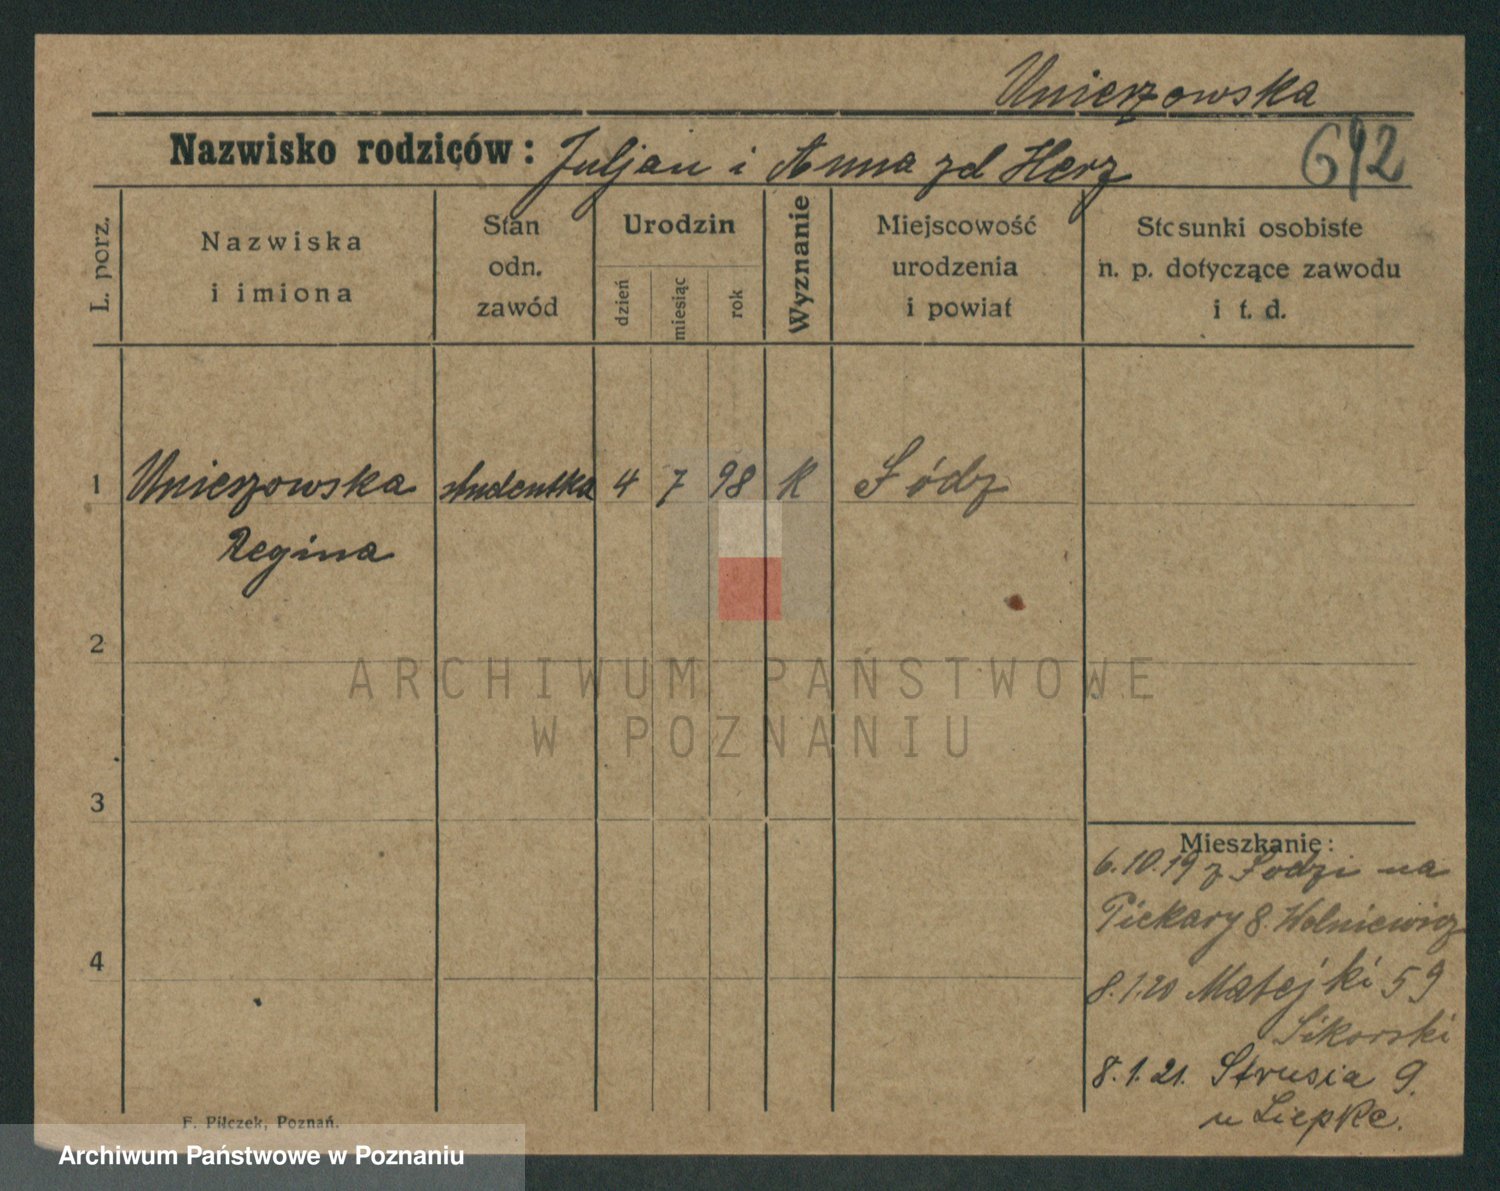 Unierzowska
Nazwisko rodziców: Juljan i Anna zd Herz
642
L. porz.
Nazwiska
i imiona
Stan
odn.
zawód
Urodzin
dzień
miesiąc
rok
Wyznanie
Miejscowość
urodzenia
i powiat
Stosunki osobiste
n. p. dotyczące zawodu
i t. d.
1 Unierzowska studentka 4 7 98 K Łódz
Regina
2
ARCHIWUM PAŃSTWOWE
W POZNANIU
3
Mieszkanie:
6.10.19 z Łodzi na
Piekary 8. Wolniewicz
4
8.1.20 Matejki 59
Sikorski
8.1.21. Strusia 9.
u Liepke.
F. Pilczek, Poznań.
Archiwum Państwowe w Poznaniu